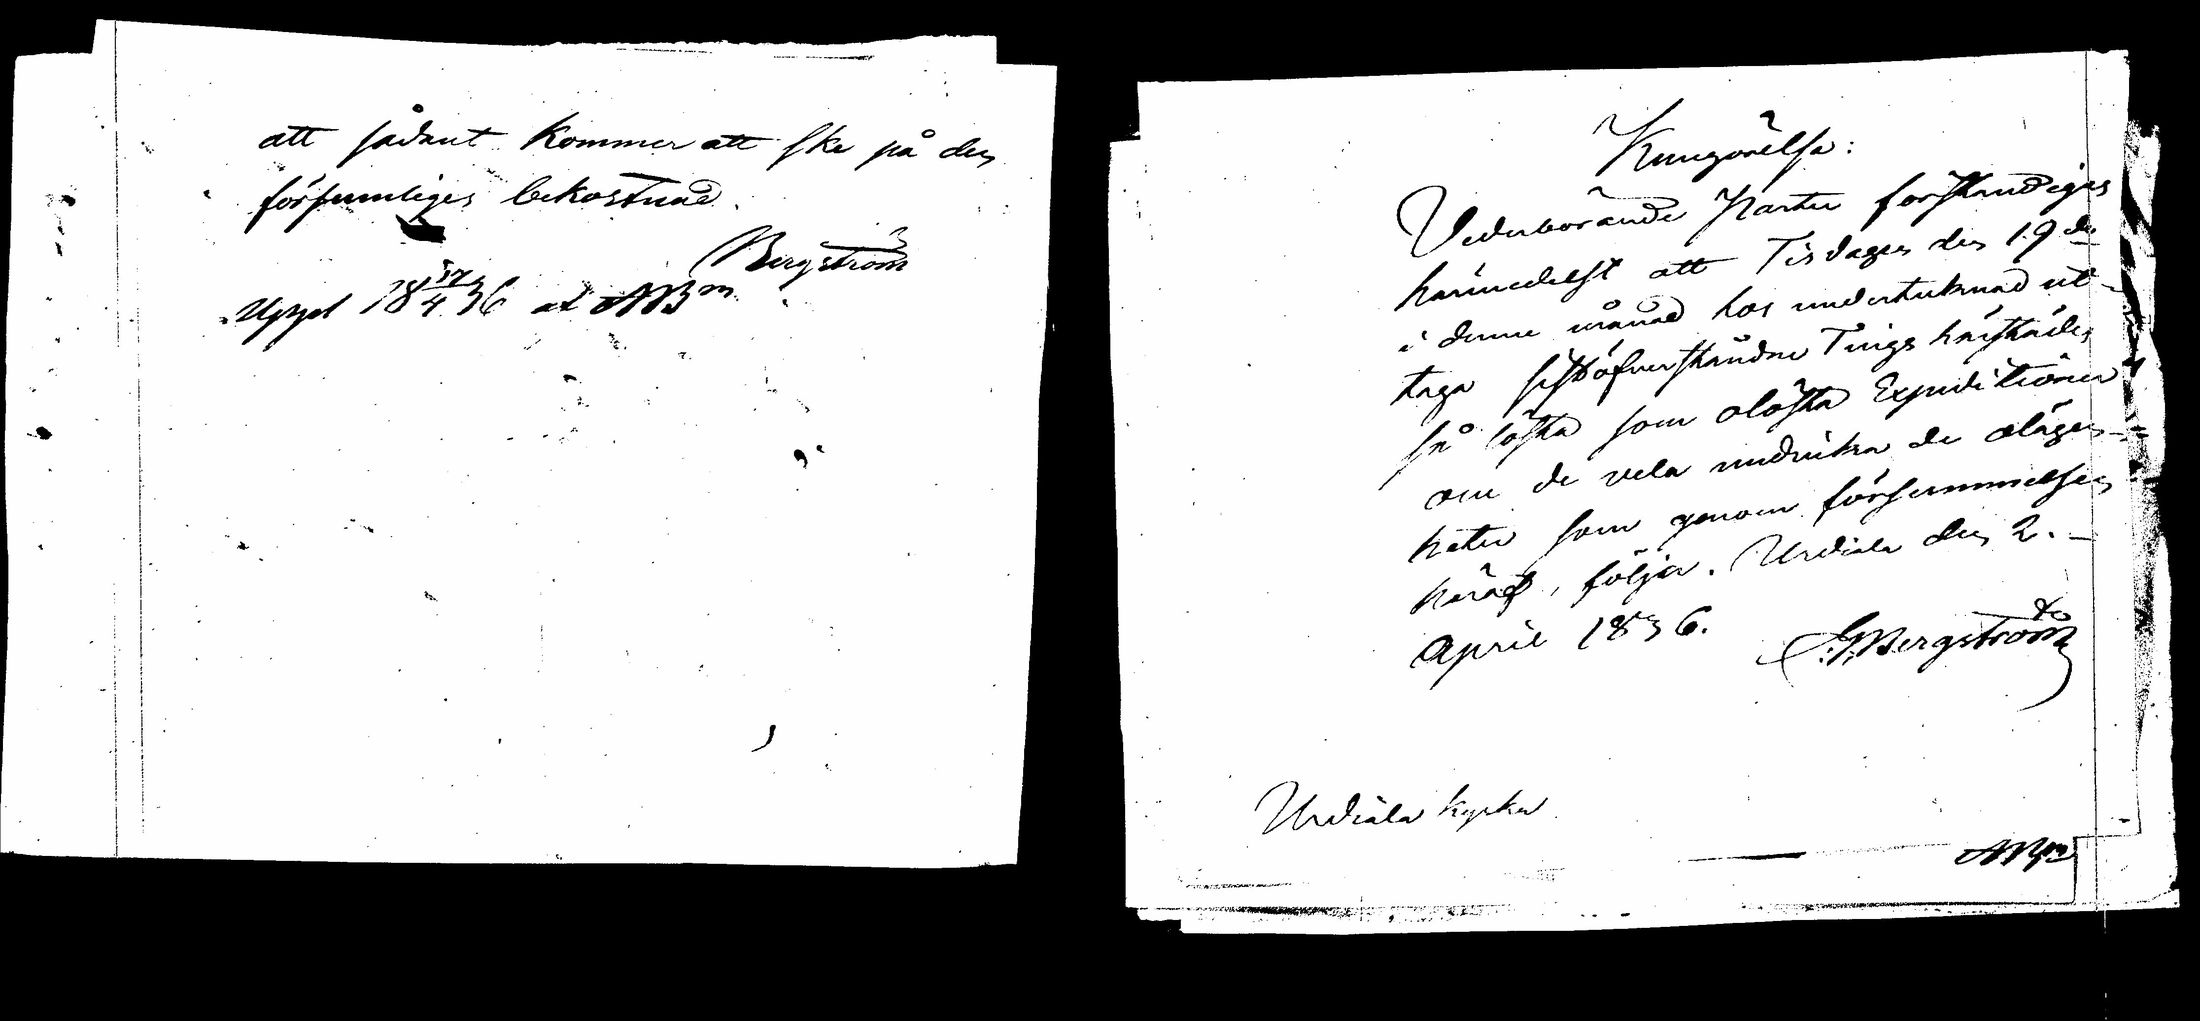 att sådant kommer att ske på den
försumliges bekostnad.
Bergström
Uppl 18 17/4 36 at ABm
Kungörelse:
Vederbörande Parter förständigas
härmedelst att Tisdagen den 19de
i denne månad hos undertecknad ut-
taga sistöfverståndne Tings härstädes
så lösta som olösta Expeditioner
om de vela undvika de olägen-
heter som genom försummelsen
häraf, följer. Urdiala den 2.
April 1836.
Bergström
Urdiala kyrka